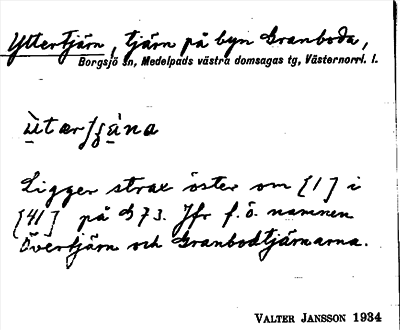 Yttertjärn, tjärn på byn Granboda,
Borgsjö sn, Medelpads västra domsagas tg, Västernorrl. l.
ùtær ʃɟɑ̀na
Ligger strax öster om [1] i
[41] på B73. Jfr f. ö. namnen
Övertjärn och Granbodtjärnarna.
VALTER JANSSON 1934